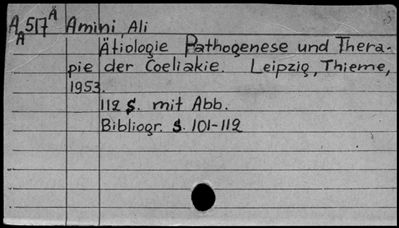 A 517 A Amini, Ali
A Ätiologie Pathogenese und Thera-
pie der Coeliakie. Leipzig, Thieme,
1953.
112 S. mit Abb.
Bibliogr. S. 101-112